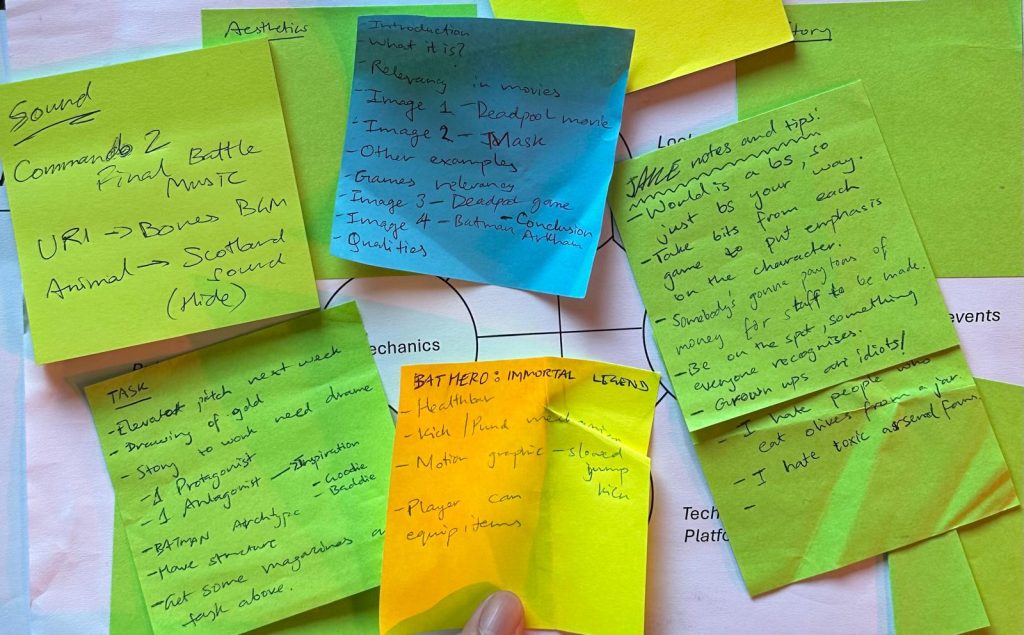 Aesthetics
Sound
Commando 2
Final Battle
Music
URI → Bones BGM
Animal → Scotland
sound
(Hide)
- Introduction
- What it is?
- Relevancy in movies
- Image 1 - Deadpool movie
- Image 2 - Mask
- Other examples
- Games relevancy
- Image 3 - Deadpool game
- Image 4 - Batman Arkham
- Conclusion
- Qualities
tory
JAKE notes and tips:
- World is a bs, so
just bs your way.
- Take bits from each
game to put emphasis
on the character.
- Somebody's gonna pay tons of
money for stuff to be made.
- Be on the spot, something
everyone recognises.
- Grown ups are idiots!
- I hate people who
eat olives from a jar
- I hate toxic arsenal fans.
-
echanics
events
Tech
Platfo
TASK
- Elevator pitch next week
- Drawing of gold
- Story to work need drama
- 1 Protagonist
- 1 Antagonist → Inspiration
- Goodie
- Baddie
- BATMAN Archtype
- Have structure
- Get some magazines
task above.
BATHERO: IMMORTAL LEGEND
- Healthbar
- Kick / Punch
- Motion graphic - slowed
jump
kick
- Player can
equip items